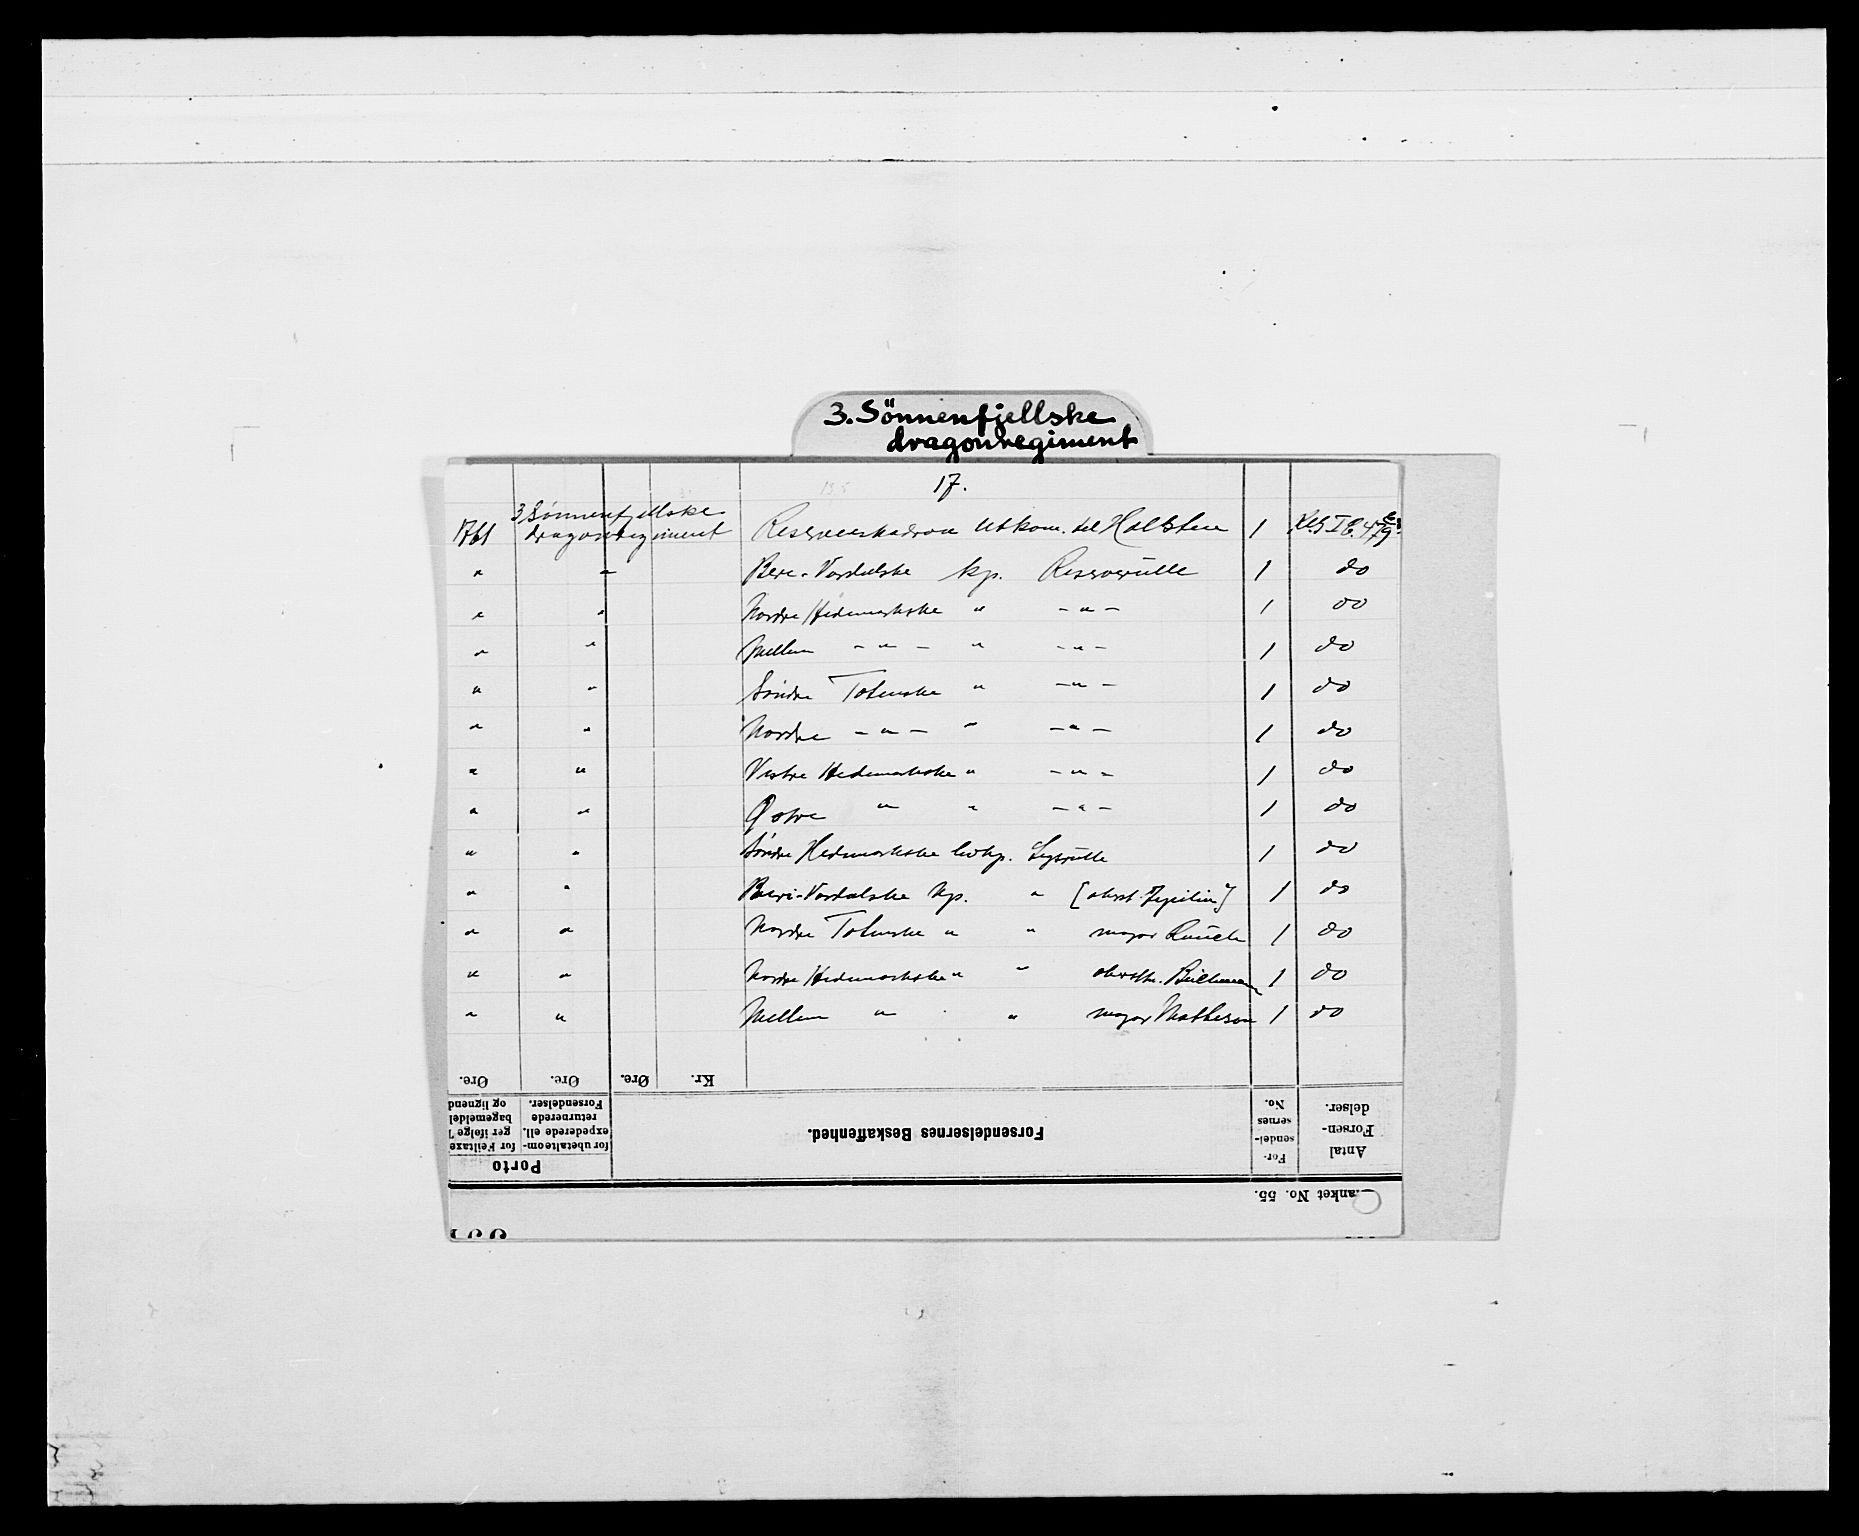 3. Sönnenfjellske
dragonregiment
17.
1761 3 Sönnenfjellske dragonregiment Reserveeskadron utkom. til Holsten 1
" " Bere-Vardalske kp. Reserverulle 1 do
" " Nordre Hedemarkske " - " - 1 do
" " Mellem - " - " - " - 1 do
" " Söndre Totenske " - " - 1 do
" " Nordre - " - " - " - 1 do
" " Vestre Hedemarkske " - " - 1 do
" " Østre " " - " - 1 do
" " Söndre Hedmarkske livkp. 1 do
" " Beri-Vardalske kp. " [oberst 1 do
" " Nordre Totenske " " major 1 do
" " Nordre Hedemarkske " " 1 do
" " Mellem " " major Matheson 1 do
Øre. Øre. Øre. Kr.
og lignend
bagemeldel
ger ifølge
for Feiltaxe
Forsendelser.
returnerede
expederede ell.
for ubetalteom-
Porto
Forsendelsernes Beskaffenhed.
For-
sendel-
sernes
No.
Antal
Forsen-
delser.
anket No. 55.